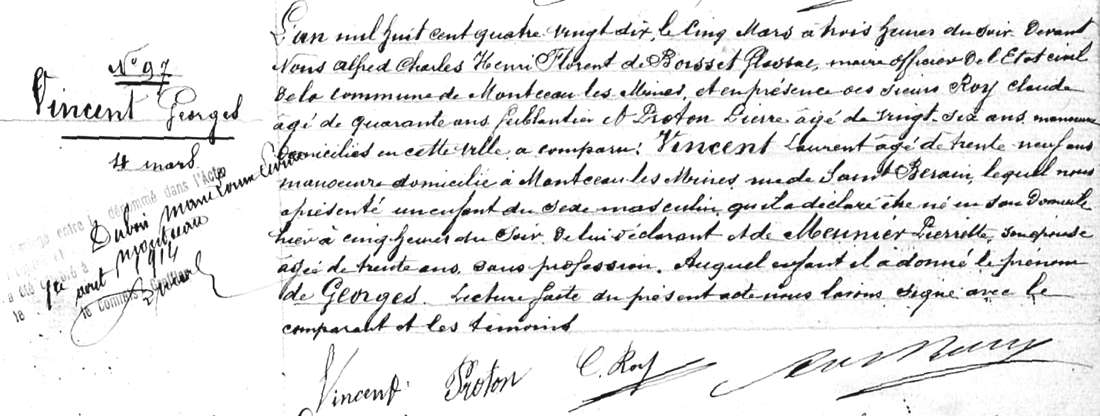 N° 97
Vincent Georges
4 mars
Mariage entre le dénommé dans l'Acte
Dubois Marie Louise
a été célébré à
août 1914
le
L'an mil huit cent quatre vingt dix, le Cinq Mars à trois heures du soir Devant
Nous Alfred Charles Henri Florent de Boisset Glassac, maire officier De l'Etat civil
De la commune de Montceau les Mines, et en présence des sieurs Roy Claude
âgé de quarante ans ferblantier et Proton Pierre âgé de vingt-six ans, manoeuvre
Domiciliés en cette ville, a comparu: Vincent Laurent âgé de trente neuf ans
manoeuvre domicilié à Montceau les Mines, rue de Saint Berain, lequel nous
a présenté un enfant du sexe masculin, qu'il a déclaré être né en son Domicile
hier à cinq heures du Soir De lui déclarant et de Meunier Pierrette, son épouse
âgée de trente ans, sans profession. Auquel enfant il a donné le prénom
de Georges. Lecture faite du présent acte nous l'avons signé avec le
comparant et les témoins
Vincent Proton C. Roy